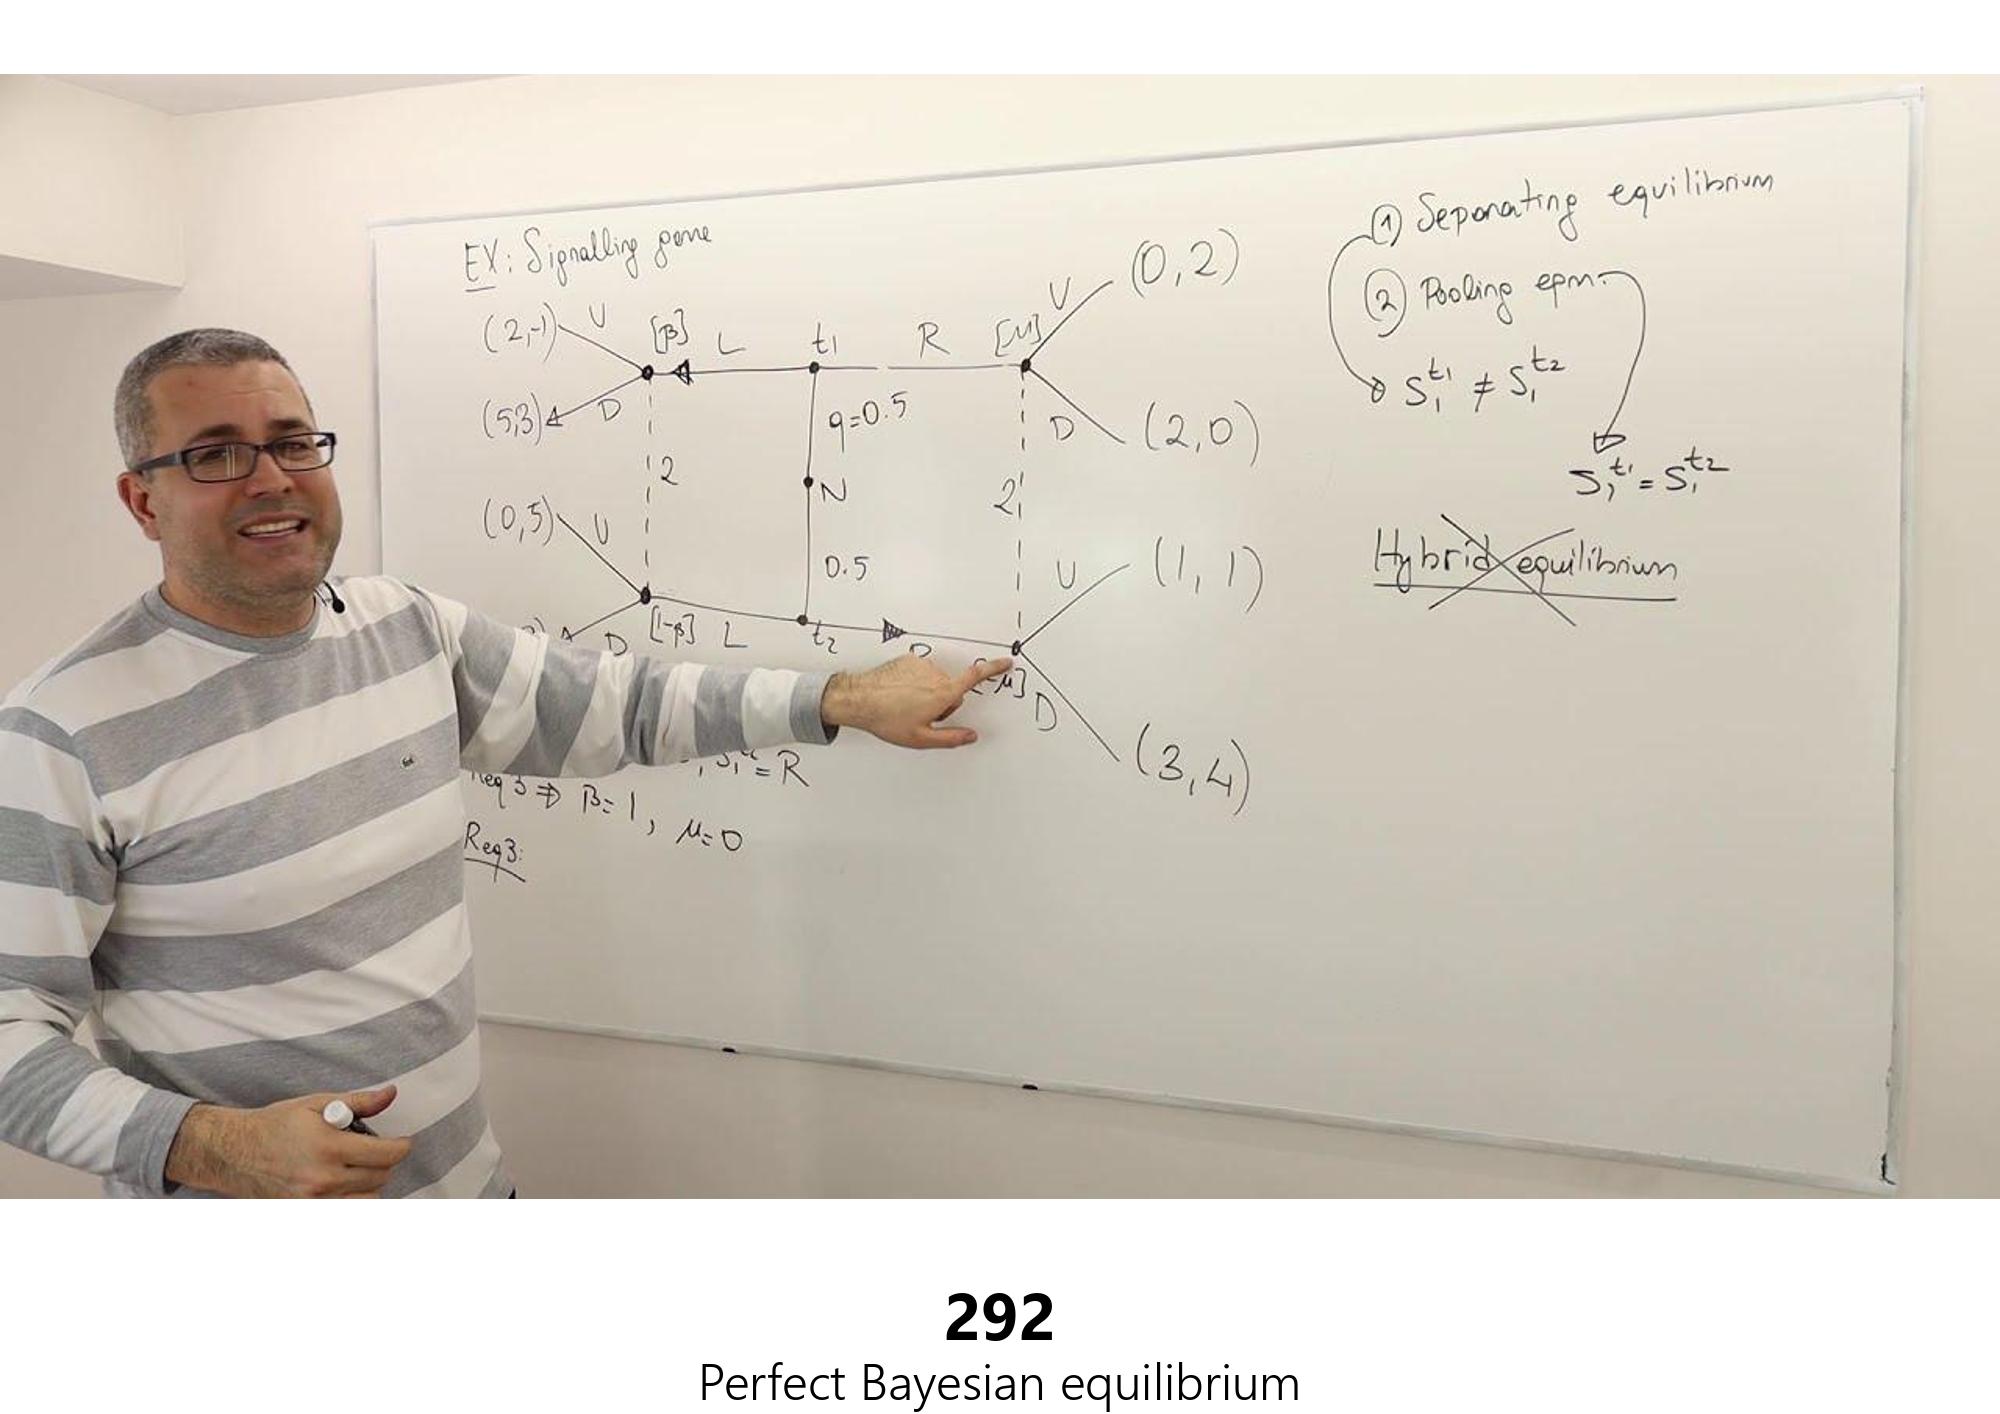 EX: Signalling game
(2,-1) U [β] L t1 R [μ] U (0,2)
(5,3) D q=0.5 D (2,0)
2 N 2
(0,5) U 0.5 U (1,1)
D [1-β] L t2 R [1-μ] D (3,4)
= R
Req 3 ⇒ β=1, μ=0
Req3:
① Separating equilibrium
② Pooling eqm.
S₁^t1 ≠ S₁^t2
S₁^t1 = S₁^t2
Hybrid equilibrium
292
Perfect Bayesian equilibrium